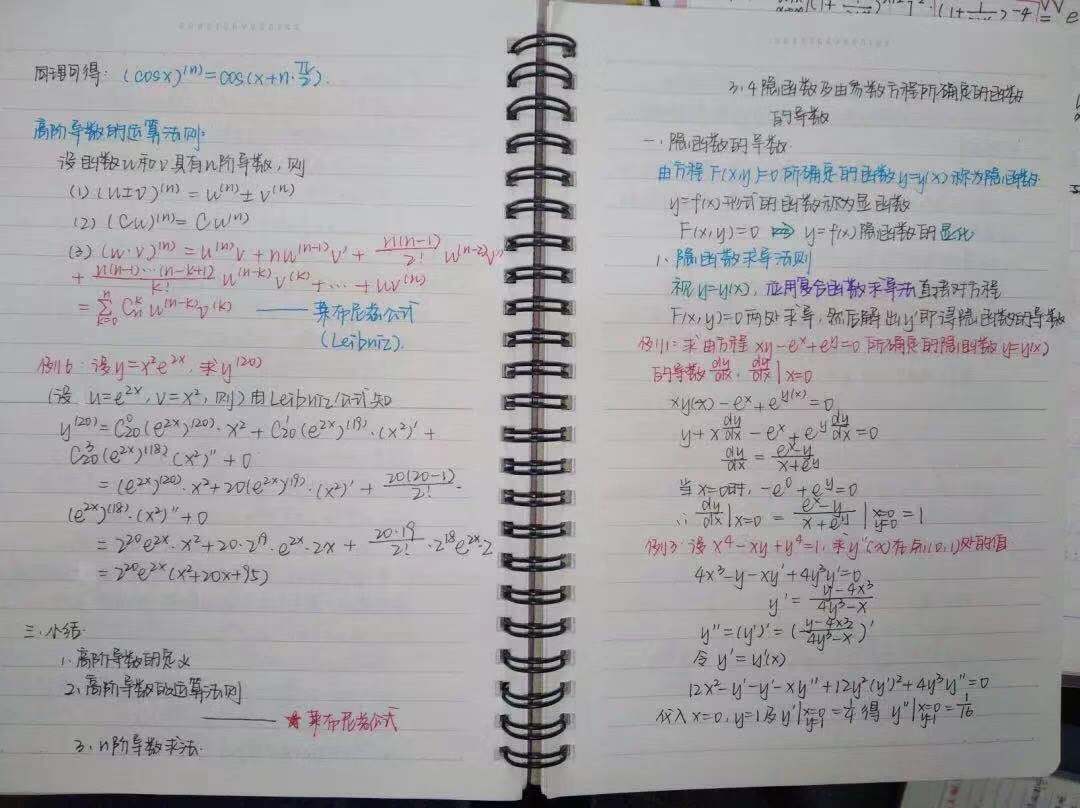 同理可得: (cosx)⁽ⁿ⁾=cos(x+n·π/2).
高阶导数的运算法则:
设函数u和v具有n阶导数,则
(1) (u±v)⁽ⁿ⁾ = u⁽ⁿ⁾±v⁽ⁿ⁾
(2) (Cu)⁽ⁿ⁾=Cu⁽ⁿ⁾
(3) (u·v)⁽ⁿ⁾=u⁽ⁿ⁾v+nu⁽ⁿ⁻¹⁾v'+ n(n-1)/2! u⁽ⁿ⁻²⁾v''
+ n(n-1)···(n-k+1)/k! u⁽ⁿ⁻ᵏ⁾v⁽ᵏ⁾+…+uv⁽ⁿ⁾
= Σ(k=0→n) Cₙᵏ u⁽ⁿ⁻ᵏ⁾v⁽ᵏ⁾ —— 莱布尼兹公式
(Leibniz).
例6: 设y=x²e²ˣ, 求y⁽²⁰⁾
(设 u=e²ˣ, v=x², 则) 由Leibniz公式知
y⁽²⁰⁾=C₂₀⁰(e²ˣ)⁽²⁰⁾·x²+C₂₀¹(e²ˣ)⁽¹⁹⁾·(x²)'+
C₂₀³(e²ˣ)⁽¹⁸⁾·(x²)''+0
=(e²ˣ)⁽²⁰⁾·x²+20(e²ˣ)⁽¹⁹⁾·(x²)'+ 20(20-1)/2! ·
(e²ˣ)⁽¹⁸⁾·(x²)''+0
=2²⁰e²ˣ·x²+20·2¹⁹·e²ˣ·2x+ 20·19/2! ·2¹⁸e²ˣ·2
=2²⁰e²ˣ(x²+20x+95)
三.小结.
1.高阶导数的定义
2.高阶导数的运算法则
—— ★莱布尼兹公式
3.n阶导数求法.
3.4隐函数及由参数方程所确定的函数
的导数
一.隐函数的导数
由方程F(x,y)=0所确定的函数y=y(x)称为隐函数
y=f(x)形式的函数称为显函数
F(x,y)=0 ⇒ y=f(x)隐函数的显化
1.隐函数求导法则
视y=y(x),应用复合函数求导法直接对方程
F(x,y)=0两边求导,然后解出y'即得隐函数的导数
例1:求由方程xy-eˣ+eʸ=0所确定的隐函数y=y(x)
的导数dy/dx, dy/dx|x=0
xy(x)-eˣ+eʸ⁽ˣ⁾=0
y+x dy/dx-eˣ+eʸ dy/dx=0
dy/dx = (eˣ-y)/(x+eʸ)
当x=0时,-e⁰+eʸ=0
∴ dy/dx|x=0 = (eˣ-y)/(x+eʸ)|x=0 y=0 =1
例3:设x⁴-xy+y⁴=1,求y''(x)在点(0,1)处的值
4x³-y-xy'+4y³y'=0
y'= (y-4x³)/(4y³-x)
y''=(y')'=((y-4x³)/(4y³-x))'
令y'=y'(x)
12x²-y'-y'-xy''+12y²(y')²+4y³y''=0
代入x=0,y=1及y'|x=0 y=1 =1/4得 y''|x=0 y=1 =1/16